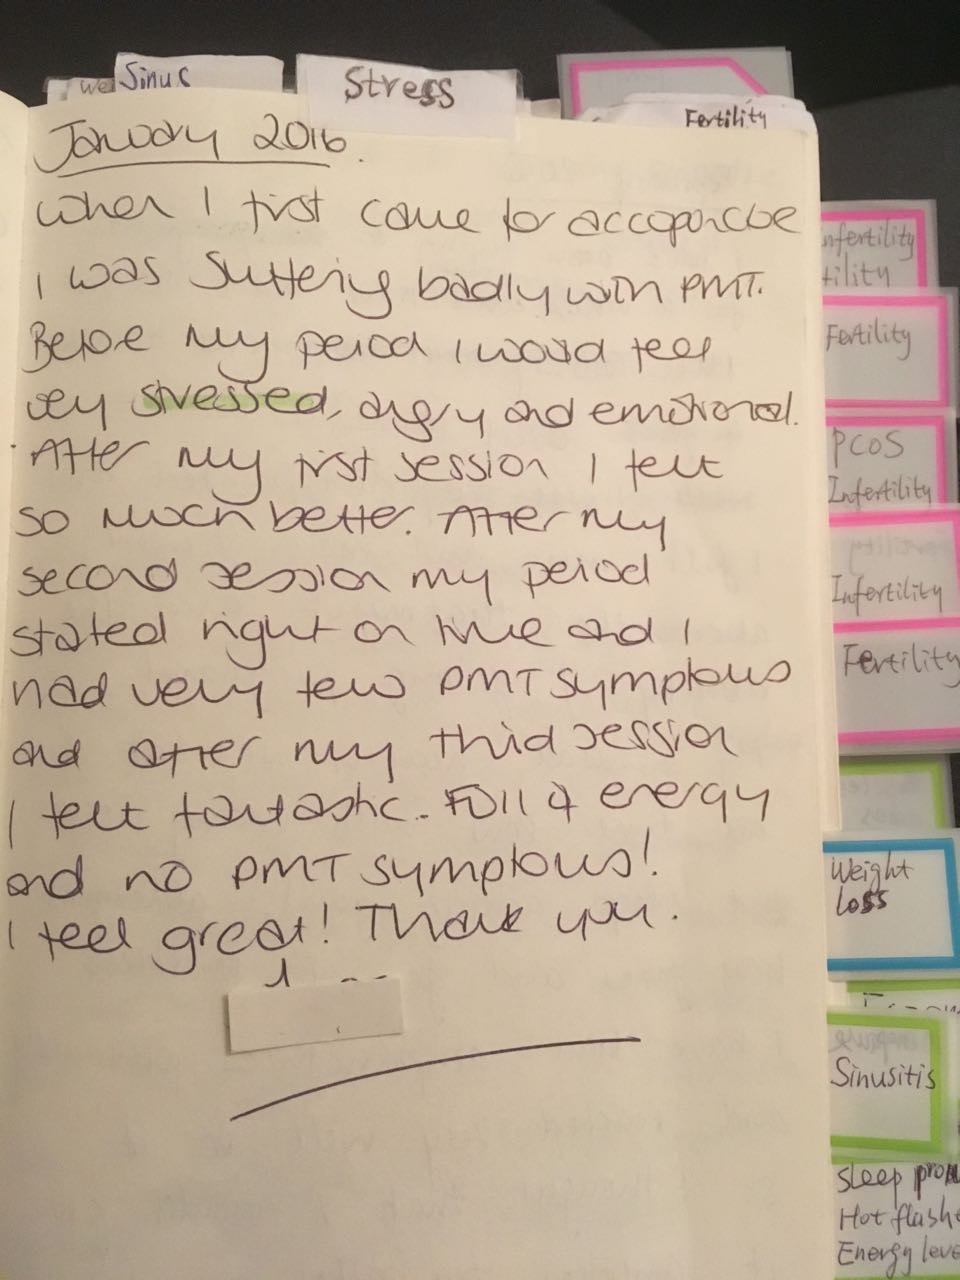 We
Sinus
Stress
Fertility
January 2016.
When I first came for accoponcbe
I was suffering badly with PMT.
Before my period I would feel
very stressed, angry and emotional.
After my first session I felt
so much better. After my
second session my period
stated right on time and I
had very few PMT symptoms
and after my third session
I felt fantastic. Full of energy
and no PMT symptoms!
I feel great! Thank you.
nfertility
tility
Fertility
PCOS
Infertility
Infertility
Fertility
Weight
Loss
Sinusitis
Sleep prob
Hot flash
Energy leve